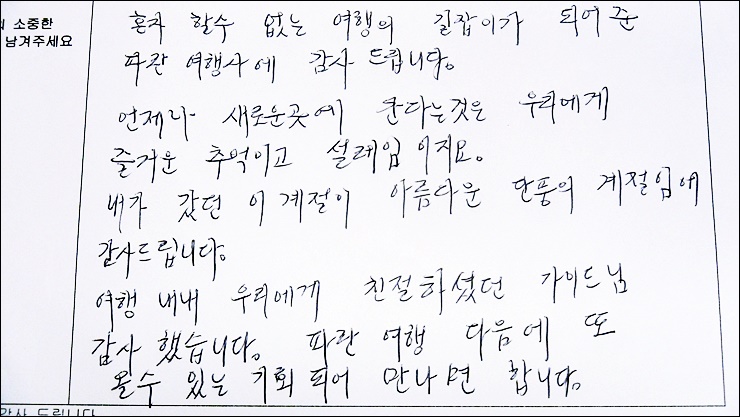 소중한
남겨주세요
혼자 할수 없는 여행의 길잡이가 되어준
파란 여행사에 감사 드립니다.
언제나 새로운곳에 간다는것은 우리에게
즐거운 추억이고 설레임이지요.
내가 갔던 이 계절이 아름다운 단풍의 계절임에
감사드립니다.
여행 내내 우리에게 친절하셨던 가이드님
감사 했습니다. 파란 여행 다음에 또
올수 있는 기회 되어 만나면 합니다.
감사 드립니다